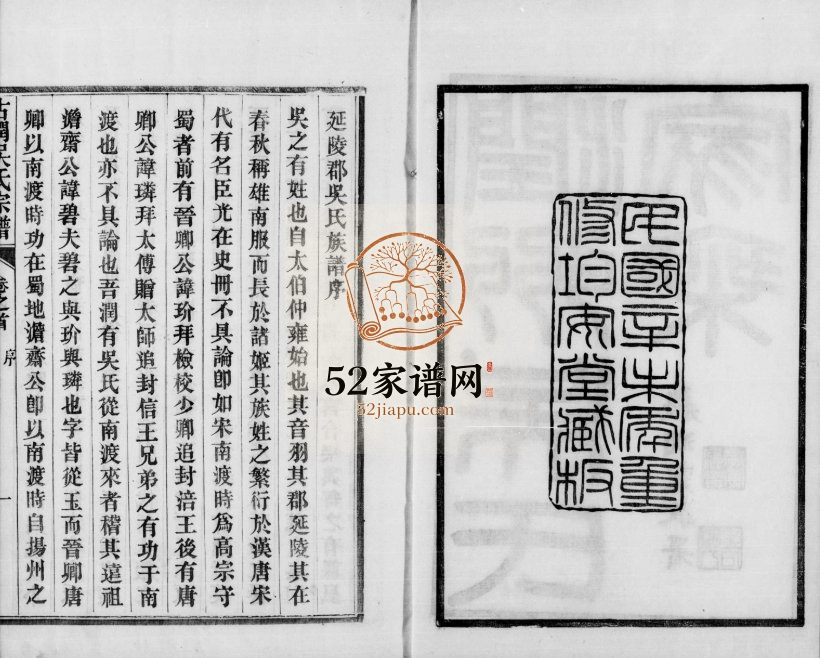 民國辛未年重
修均安堂藏板
延陵郡吳氏族譜序
吳之有姓也自太伯仲雍始也其音羽其郡延陵其在
春秋稱雄南服而長於諸姬其族姓之繁衍於漢唐宋
代有名臣光在史冊不具論卽如宋南渡時爲高宗守
蜀者前有晉卿公諱玠拜檢校少卿追封涪王後有唐
卿公諱璘拜太傅贈太師追封信王兄弟之有功于南
渡也亦不具論也吾潤有吳氏從南渡來者稽其遠祖
澹齋公諱碧夫碧之與玠與璘也字皆從玉而晉卿唐
卿以南渡時功在蜀地澹齋公卽以南渡時自揚州之
古潤吳氏宗譜
卷之首
序
一
52家谱网
52jiapu.com